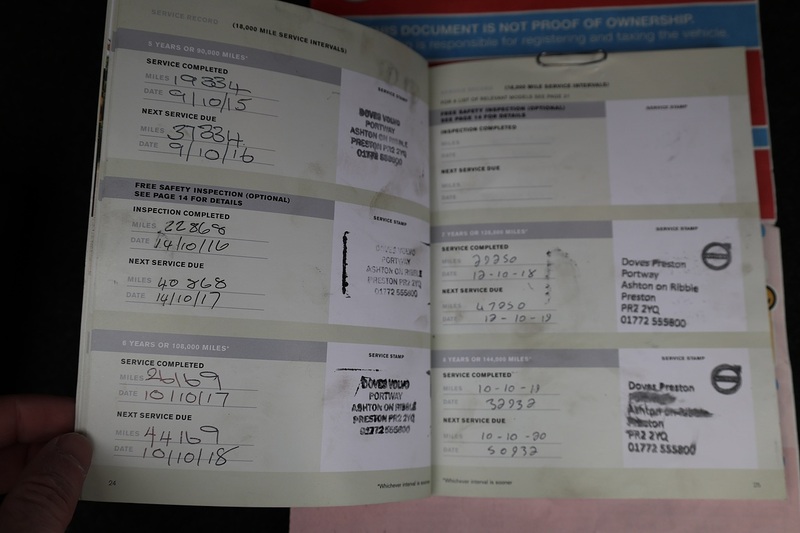 THIS DOCUMENT IS NOT PROOF OF OWNERSHIP.
is responsible for registering and taxing the vehicle.
SERVICE RECORD (18,000 MILE SERVICE INTERVALS)
5 YEARS OR 90,000 MILES*
SERVICE COMPLETED
MILES 19334
DATE 9/10/15
NEXT SERVICE DUE
MILES 37334
DATE 9/10/16
SERVICE STAMP
DOVES VOLVO
PORTWAY
ASHTON ON RIBBLE
PRESTON PR2 2YQ
01772 555800
FREE SAFETY INSPECTION (OPTIONAL)
SEE PAGE 14 FOR DETAILS
INSPECTION COMPLETED
MILES 22868
DATE 14/10/16
NEXT SERVICE DUE
MILES 40868
DATE 14/10/17
SERVICE STAMP
DOVES VOLVO
PORTWAY
ASHTON ON RIBBLE
PRESTON PR2 2YQ
01772 555800
6 YEARS OR 108,000 MILES*
SERVICE COMPLETED
MILES 26169
DATE 10/10/17
NEXT SERVICE DUE
MILES 44169
DATE 10/10/18
SERVICE STAMP
DOVES VOLVO
PORTWAY
ASHTON ON RIBBLE
PRESTON PR2 2YQ
01772 555800
24
*Whichever interval is sooner
SERVICE RECORD (18,000 MILE SERVICE INTERVALS)
FOR A LIST OF RELEVANT MODELS SEE PAGE 21
FREE SAFETY INSPECTION (OPTIONAL)
SEE PAGE 14 FOR DETAILS
INSPECTION COMPLETED
MILES
DATE
NEXT SERVICE DUE
MILES
DATE
SERVICE STAMP
7 YEARS OR 126,000 MILES*
SERVICE COMPLETED
MILES 29250
DATE 12-10-18
NEXT SERVICE DUE
MILES 47250
DATE 12-10-19
SERVICE STAMP
Doves Preston
Portway
Ashton on Ribble
Preston
PR2 2YQ
01772 555800
8 YEARS OR 144,000 MILES*
SERVICE COMPLETED
MILES 10-10-19
DATE 32932
NEXT SERVICE DUE
MILES 10-10-20
DATE 50932
SERVICE STAMP
Doves Preston
Ashton on Ribble
Preston
PR2 2YQ
01772 555800
*Whichever interval is sooner
25